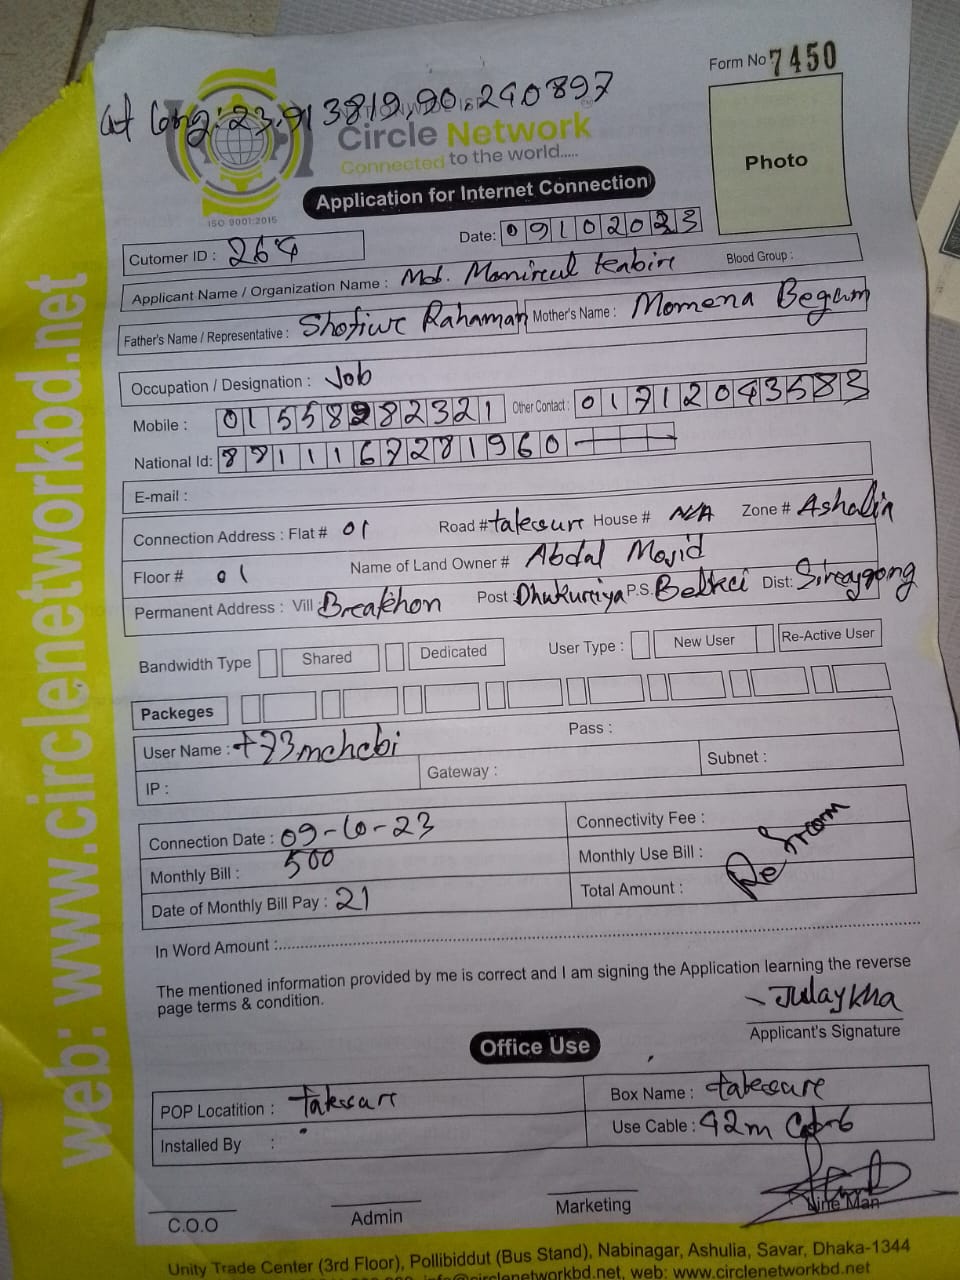 Form No 7450
at long: 23.913819, 90.240897
NATIONWIDE ISP
Circle Network
Connected to the world.....
Photo
ISO 9001:2015
Application for Internet Connection
Cutomer ID : 264
Date: 09102023
Applicant Name / Organization Name : Md. Monirul kabir Blood Group :
Father's Name / Representative : Shofiur Rahaman Mother's Name : Momena Begum
Occupation / Designation : Job
Mobile : 01558982321 Other Contact : 01712043583
National Id: 8811167281960
E-mail :
Connection Address : Flat # 01 Road # takssure House # N/A Zone # Ashalia
Floor # 01 Name of Land Owner # Abdal Mojid
Permanent Address : Vill Post : Dhukuriya P.S. Belkci Dist:
Bandwidth Type Shared Dedicated User Type : New User Re-Active User
Packeges
User Name : t73mehebi Pass :
IP : Gateway : Subnet :
Connection Date : 09-10-23 Connectivity Fee :
Monthly Bill : 500 Monthly Use Bill :
Date of Monthly Bill Pay : 21 Total Amount :
In Word Amount :
The mentioned information provided by me is correct and I am signing the Application learning the reverse
page terms & condition.
Julaykha
Applicant's Signature
Office Use
POP Locatition : Box Name :
Installed By : Use Cable : 42m
C.O.O Admin Marketing Line Man
Unity Trade Center (3rd Floor), Pollibiddut (Bus Stand), Nabinagar, Ashulia, Savar, Dhaka-1344
info@circlenetworkbd.net, web: www.circlenetworkbd.net
web: www.circlenetworkbd.net